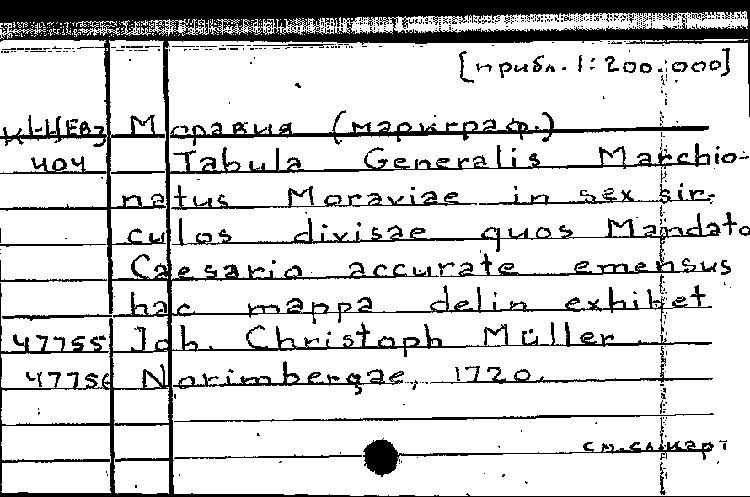 [прибл. 1:200.000]
Моравия (маркграф.)
404 Tabula Generalis Marchio-
natus Moraviae in sex sir-
culos divisae quos Mandato
Caesario accurate emensus
hac mappa delin exhibet
47755 Joh. Christoph Müller.
47756 Norimbergae, 1720.
см. сл. карт